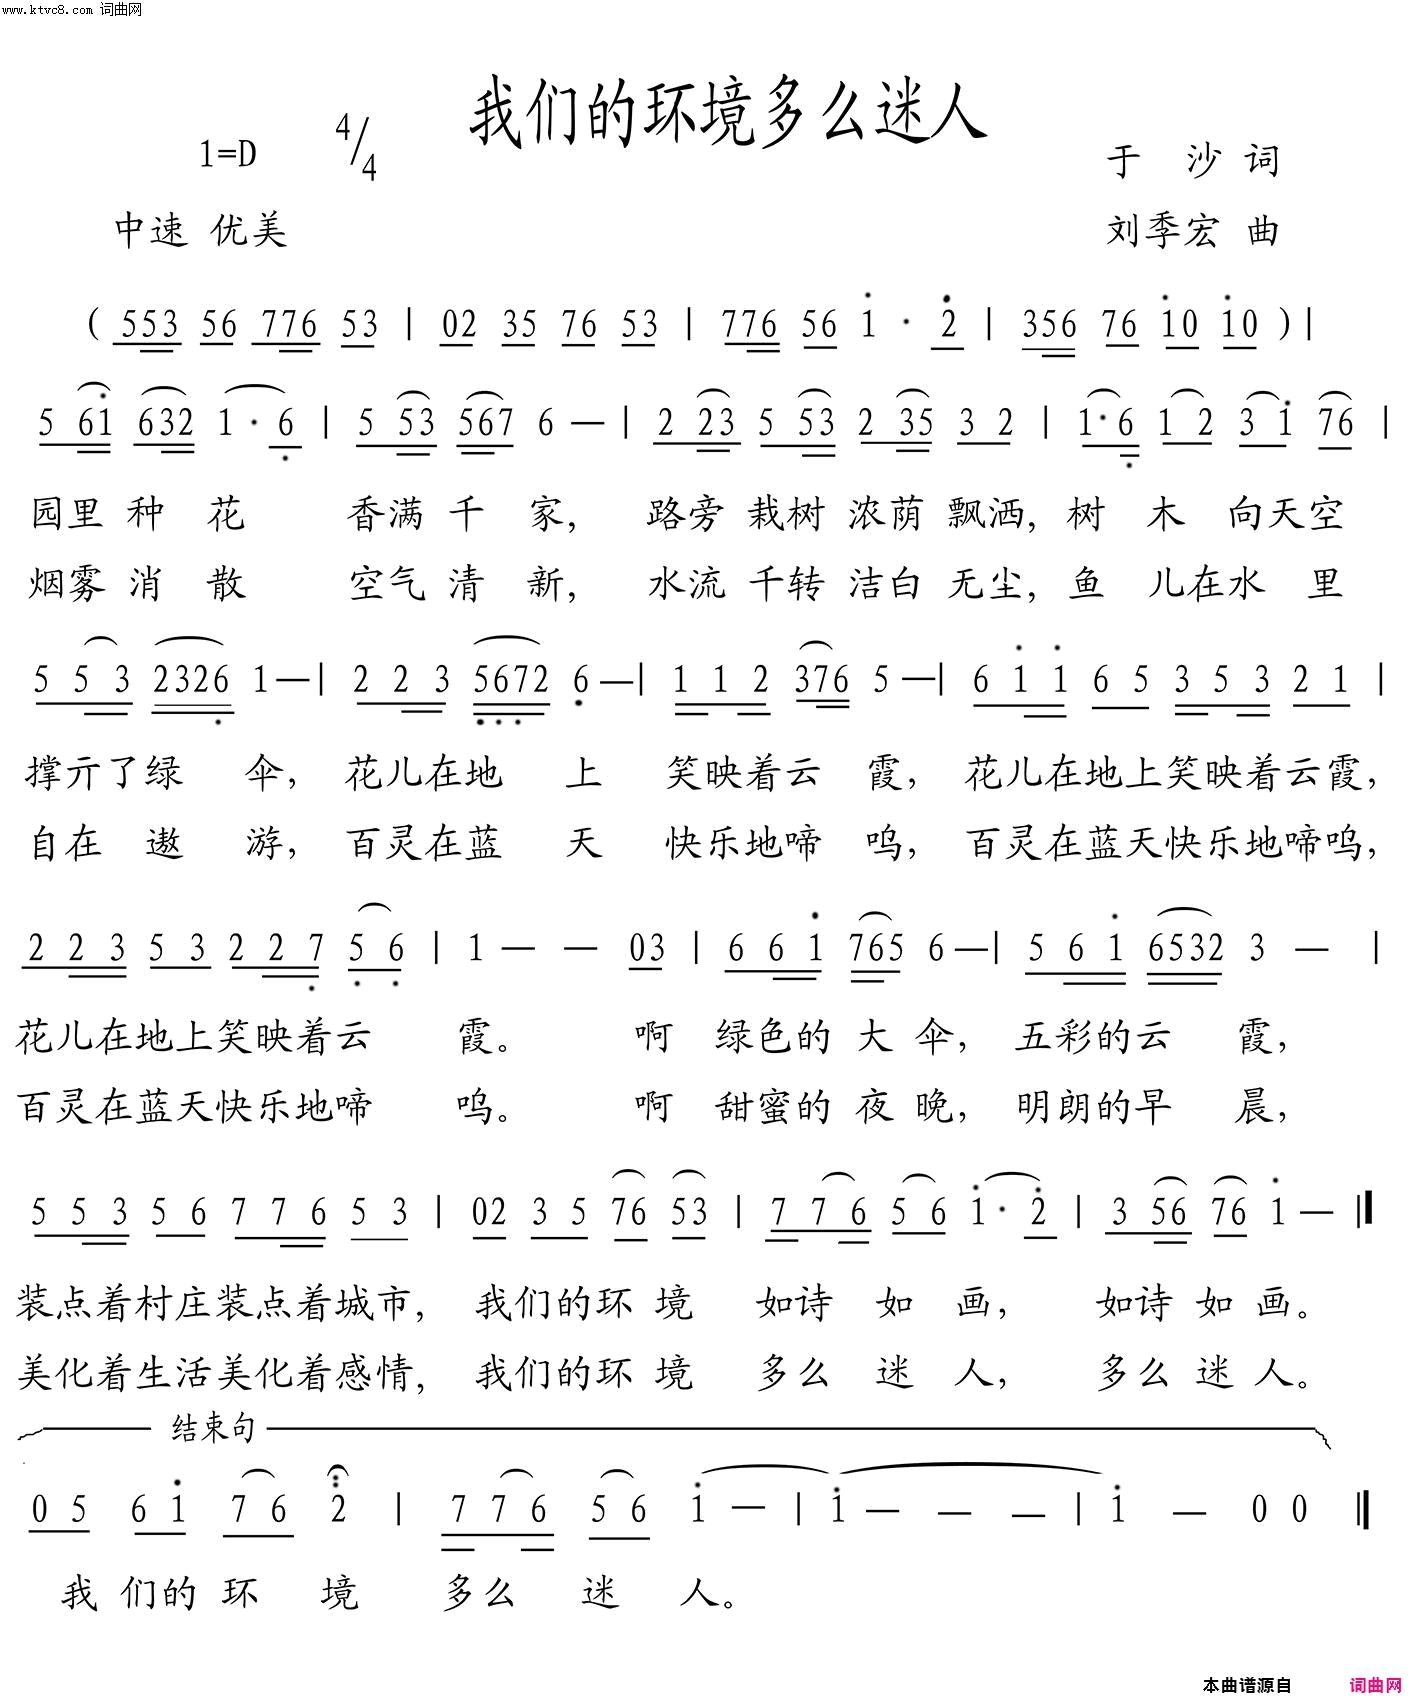 www.ktvc8.com 词曲网
我们的环境多么迷人
1=D 4/4
于 沙 词
中速 优美
刘季宏 曲
( 553 56 776 53 | 02 35 76 53 | 776 56 1 · 2 | 356 76 10 10 ) |
5 61 632 1 · 6 | 5 53 567 6 — | 2 23 5 53 2 35 3 2 | 1·6 1 2 3 1 76 |
园里 种 花 香满 千 家, 路旁 栽树 浓荫 飘洒, 树 木 向天空
烟雾 消 散 空气 清 新, 水流 千转 洁白 无尘, 鱼 儿在水 里
5 5 3 2326 1 — | 2 2 3 5672 6 — | 1 1 2 376 5 — | 6 1 1 6 5 3 5 3 2 1 |
撑亓了绿 伞, 花儿在地 上 笑映着云 霞, 花儿在地上笑映着云霞,
自在 遨 游, 百灵在蓝 天 快乐地啼 呜, 百灵在蓝天快乐地啼呜,
2 2 3 5 3 2 2 7 5 6 | 1 — — 03 | 6 6 1 765 6 — | 5 6 1 6532 3 — |
花儿在地上笑映着云 霞。 啊 绿色的 大 伞, 五彩的云 霞,
百灵在蓝天快乐地啼 呜。 啊 甜蜜的 夜 晚, 明朗的早 晨,
5 5 3 5 6 7 7 6 5 3 | 02 3 5 76 53 | 7 7 6 5 6 1 · 2 | 3 56 76 1 — ‖
装点着村庄装点着城市, 我们的环 境 如诗 如 画, 如诗 如 画。
美化着生活美化着感情, 我们的环 境 多么 迷 人, 多么 迷 人。
结束句
0 5 6 1 7 6 2 | 7 7 6 5 6 1 — | 1 — — — | 1 — 0 0 ‖
我 们的 环 境 多么 迷 人。
本曲谱源自 词曲网